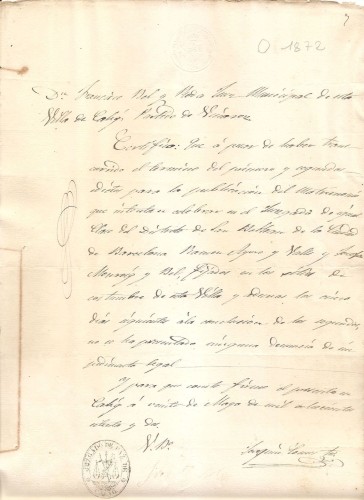 O. 1872
Dn. Francisco Bel y Roca Juez Municipal de esta
Villa de Calig, Partido de Vinaroz
Certifico: Que á pesar de haber trans
currido el termino del primero y segundo
edicto para la publicación del Matrimonio
que intenta celebrar en el Juzgado de
del distrito de la Ciudad
de Barcelona Ramon y Valls y Josefa
y Bel, fijados en los sitios de
costumbre de esta Villa y ademas, los cinco
dias siguientes á la conclusion de los segundos
no se ha presentado ninguna denuncia de im
pedimento legal
Y para que conste firmo el presente en
Calig á veinte de Mayo de mil ochocientos
setenta y dos
V. B.
Joaquin